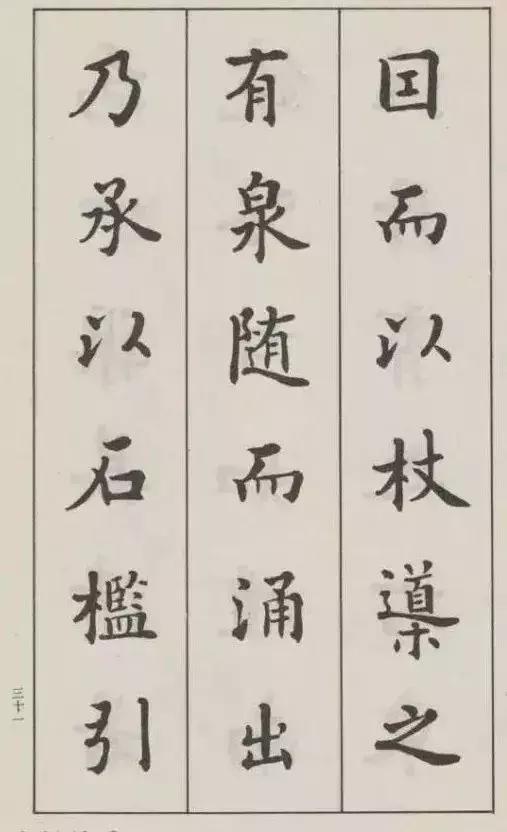 囙而以杖導之
有泉随而涌出
乃承以石檻引
三十一